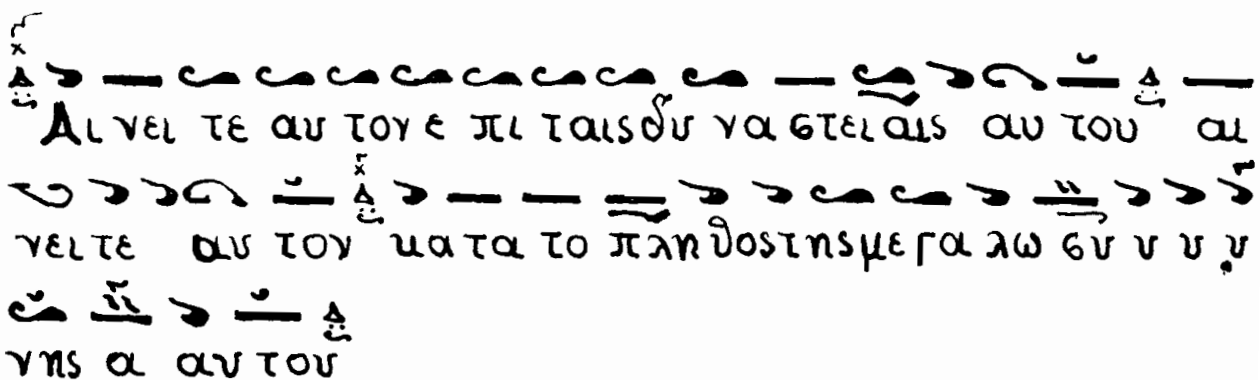 Αι νει τε αυ τον ε πι ταις δυ να στει αις αυ του αι
νει τε αυ τον κα τα το πλη θος της με γα λω συ υ υ υ
νης α αυ του